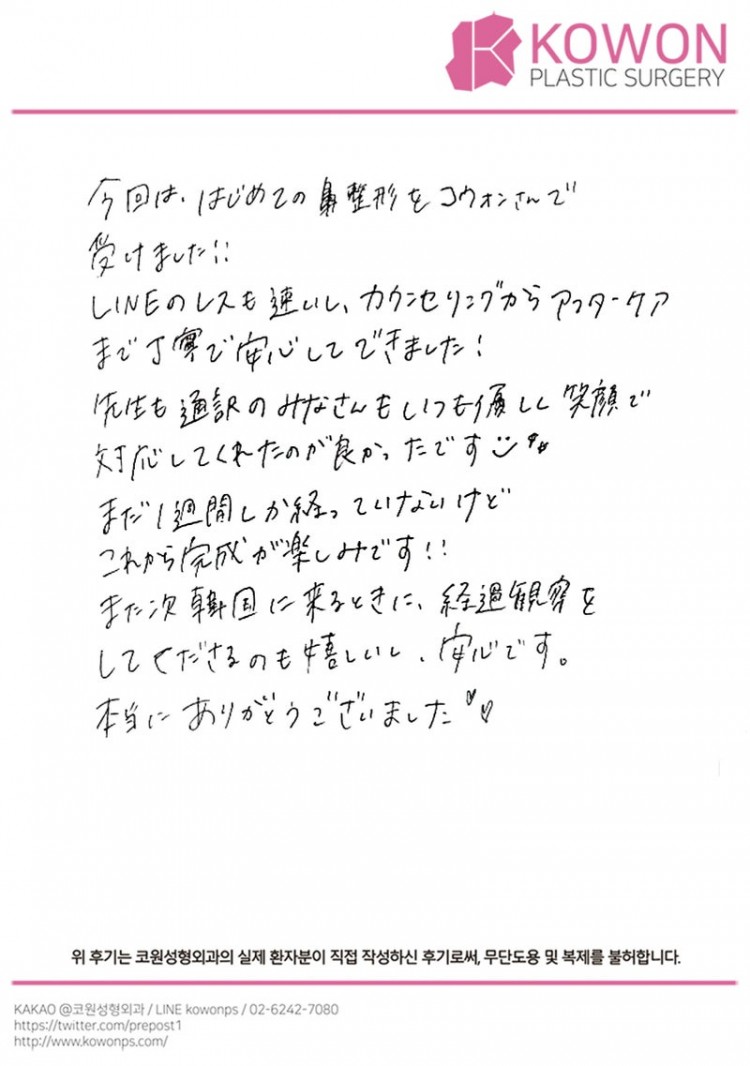 KOWON
PLASTIC SURGERY
今回は、はじめての鼻整形をコウォンさんで
受けました!!
LINEのレスも速いし、カウンセリングからアフターケア
まで丁寧で安心してできました!
先生も通訳のみなさんもいつも優しく笑顔で
対応してくれたのが良かったです
まだ1週間しか経っていないけど
これから完成が楽しみです!!
また次韓国に来るときに、経過観察を
してくださるのも嬉しいし、安心です。
本当にありがとうございました♡♡
위 후기는 코원성형외과의 실제 환자분이 직접 작성하신 후기로써, 무단도용 및 복제를 불허합니다.
KAKAO @코원성형외과 / LINE kowonps / 02-6242-7080
https://twitter.com/prepost1
http://www.kowonps.com/